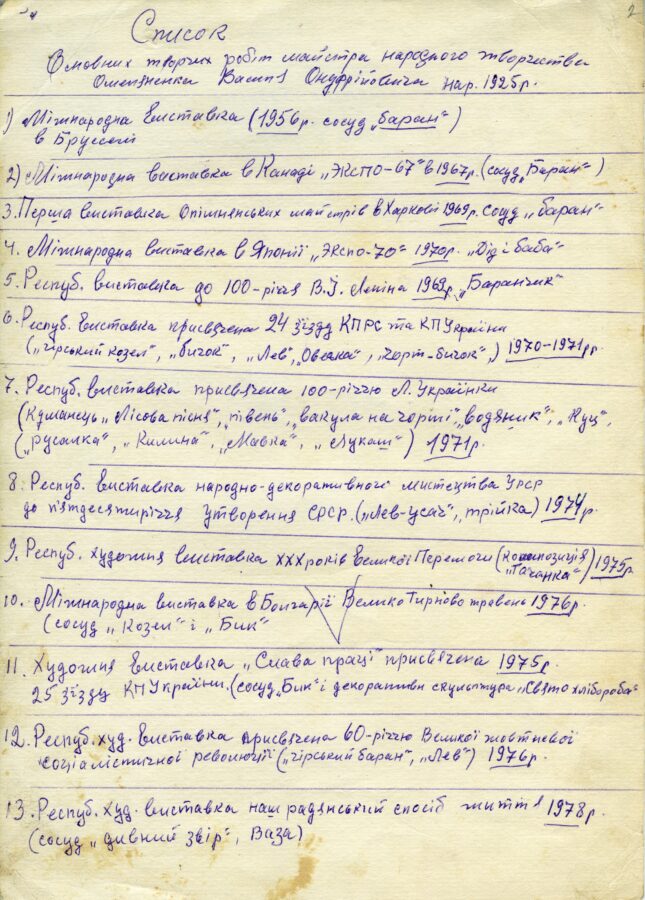 2
Список
Основних творчих робіт майстра народного творчества
Омеляненка Василя Онуфрійовича нар. 1925р.
1) Міжнародна виставка (1956р. сосуд „баран“)
в Брусселі
2) Міжнародна виставка в Канаді „Экспо-67“ в 1967р. (сосуд „Баран“)
3. Перша виставка Опішнянських майстрів в Харкові 1969р. сосуд „баран“
4. Міжнародна виставка в Японії „Экспо-70“ 1970р. „Дід і баба“
5. Респуб. виставка до 100-річчя В.І. Леніна 1969р. „Баранчик“
6. Респуб. виставка присвячена 24 зїзду КПРС та КПУкраїни
(„гірський козел“, „бичок“, „Лев“, „Овечка“, „Чорт-бичок“,) 1970-1971рр.
7. Респуб. виставка присвячена 100-річчю Л. Українки
(Куманець „Лісова пісня“, „півень“, „вакула на чорті“, „водяник“, „Куц“,
(„русалка“, „Килина“, „Мавка“, „Лукаш“) 1971р.
8. Респуб. виставка народно-декоративного мистецтва УРСР
до пятдесятиріччя утворення СРСР. („Лев-усач“, „трійка“) 1974р.
9. Респуб. художня виставка ХХХ років Великої Перемоги (композиція „Тачанка“) 1975р.
10. Міжнародна виставка в Болгарії Велико Тирново травень 1976р.
(сосуд „Козел“ і „Бик“
11. Художня виставка „Слава праці“ присвячена 1975р.
25 зїзду КПУкраїни. (сосуд „Бик“ і декоративн скульптура „Свято хлібороба“
12. Респуб. худ. виставка присвячена 60-річчю Великої жовтневої
соціалістичної революції („гірський баран“, „Лев“) 1976р.
13. Респуб. худ. виставка наш радянський спосіб життя 1978р
(сосуд „дивний звір“, Ваза)